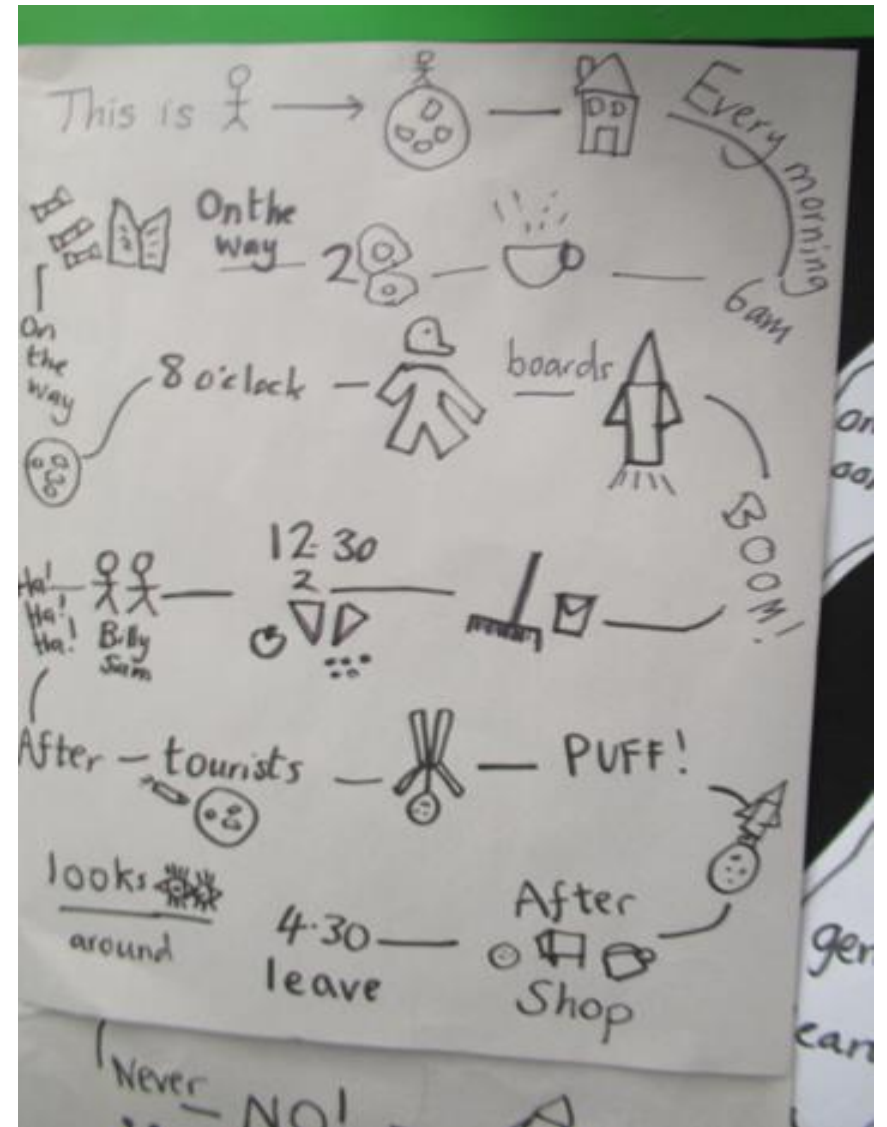 This is
Every morning
6am
2
On the
way
On
the
way
8 o'clock
boards
BOOM!
12.30
2
Billy
Sam
Ha!
Ha!
Ha!
After - tourists
PUFF!
After
Shop
4.30
leave
looks
around
Never
NO!